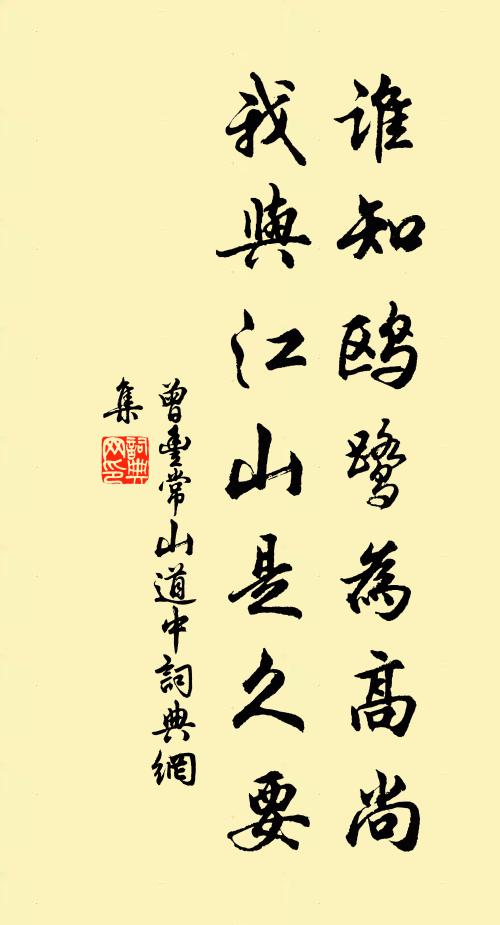 誰知鸥鹭為高尚
我與江山是久要
曾豊常山道中詞典網
集
詞典
网印